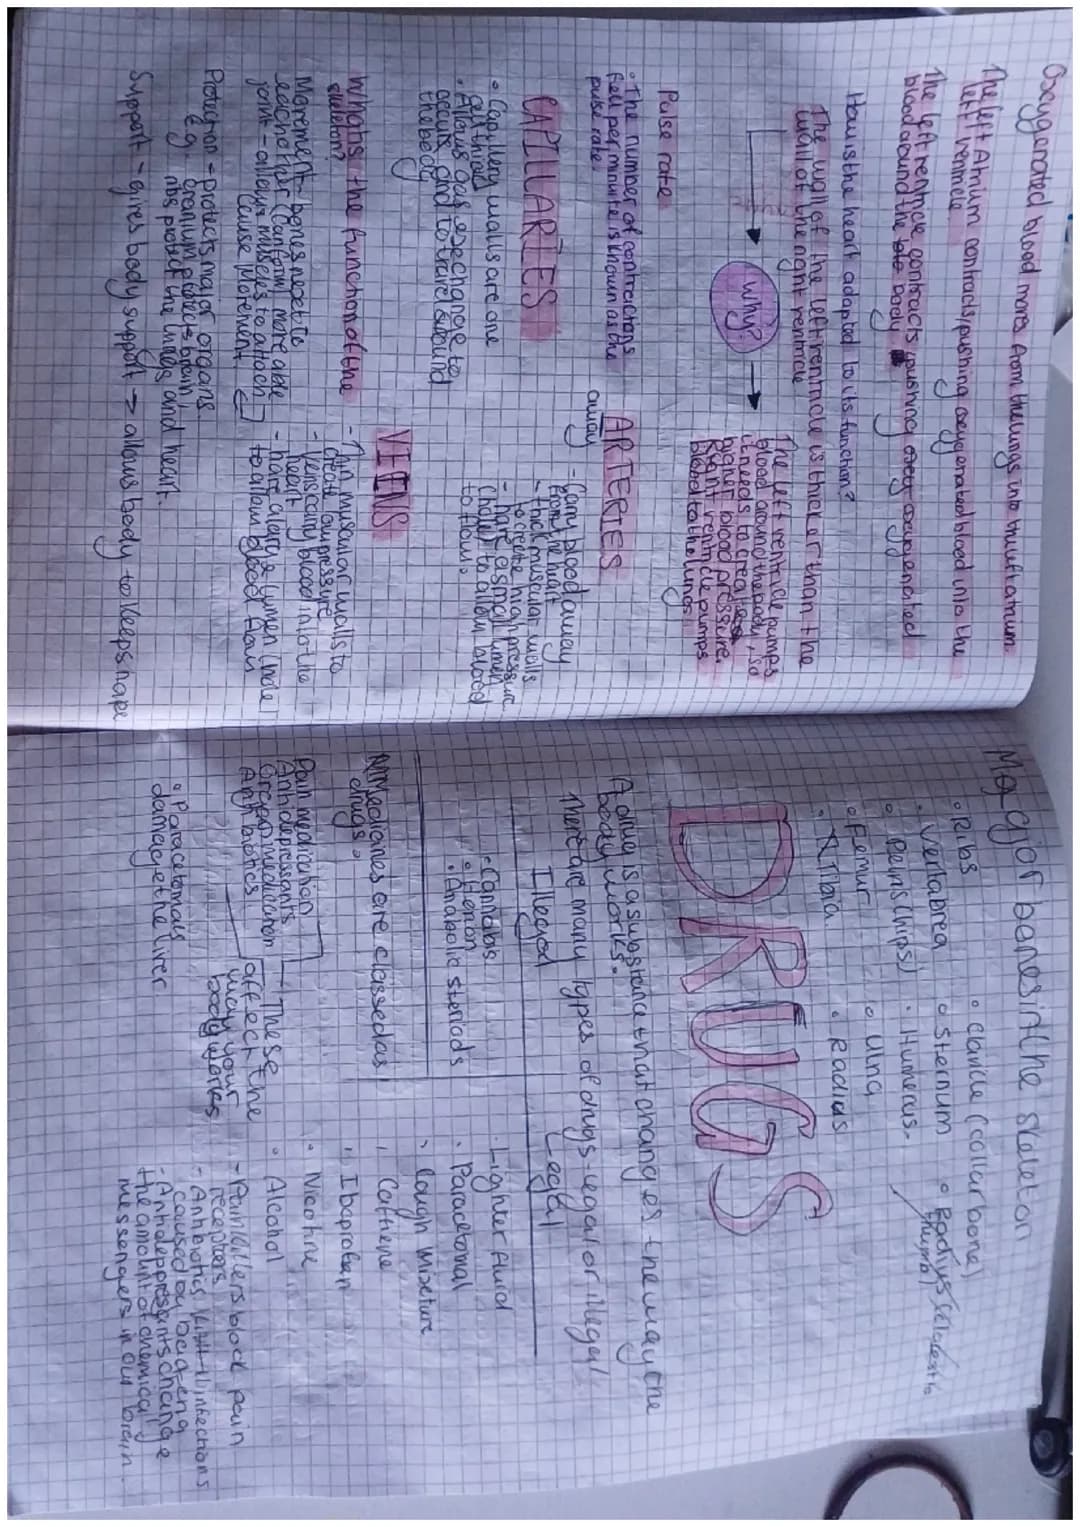 Oxygenated blood moves from the lungs into the left atrium.
The left Atrium contracts, pushing oxygenated blood into the
left ventricle.
The left ventricle contracts pushing oxygenated
blood around the body
How is the heart adapted to its function?
The wall of the left ventricle is thicker than the
wall of the right ventricle
Why?
The left ventricle pumps
blood around the body, so
it needs to create
higher blood pressure.
Right ventricle pumps
blood to the lungs
Pulse rate
• The number of contractions
felt per minute is known as the
pulse rate.
ARTERIES
- Carry blood away
away from the heart
- thick muscular walls
to create high pressure
- have a small lumen
(hole) to allow blood
to flow.
CAPILLARIES
• Capillary walls are one
cell thick
• Allows gas exchange to
occur and to travel around
the body
VEINS
- Thin muscular walls to
create low pressure
- Veins carry blood into the
heart
- have a large lumen (hole)
to allow blood flow
What is the function of the
skeleton?
Movement - bones next to
each other can form moveable
joint - allows muscles to attach
Cause Movement
Protection - protects major organs
E.g. cranium protects brain,
ribs protect the lungs and heart.
Support - gives body support → allows body to keep shape
Major bones in the skeleton
• Ribs
• Vertabrea
• Pelvis (hips)
• Femur
• Tibia.
• Clavicle (collar bone)
• Sternum
• Humerus.
• Ulna
• Radius
• Radius
DRUGS
A drug is a substance that changes the way the
body works.
There are many types of drugs - legal or illegal
Illegal
Legal
• Cannabis.
• Heroin
• Anabolic steriods
• Lighter fluid
• Paracetomal
• Cough Mixture
• Caffiene
• Ibaprofen
• Nicotine
• Alcohol
Medicines are classed as
drugs.
Pain medication
Antidepressants
medication
Antibiotics
These
affect the
way your
body works
• Paracetomals
damage the liver
- Painkillers block pain
receptors
- Antibiotics kill infections
caused by bacteria
- Antidepressants change
the amount of chemical
messengers in our brain.